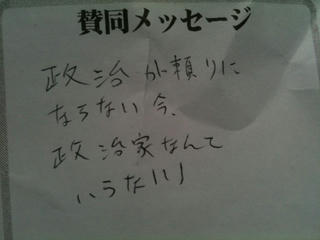 賛同メッセージ
政治が頼りに
ならない今、
政治家なんて
いらない!